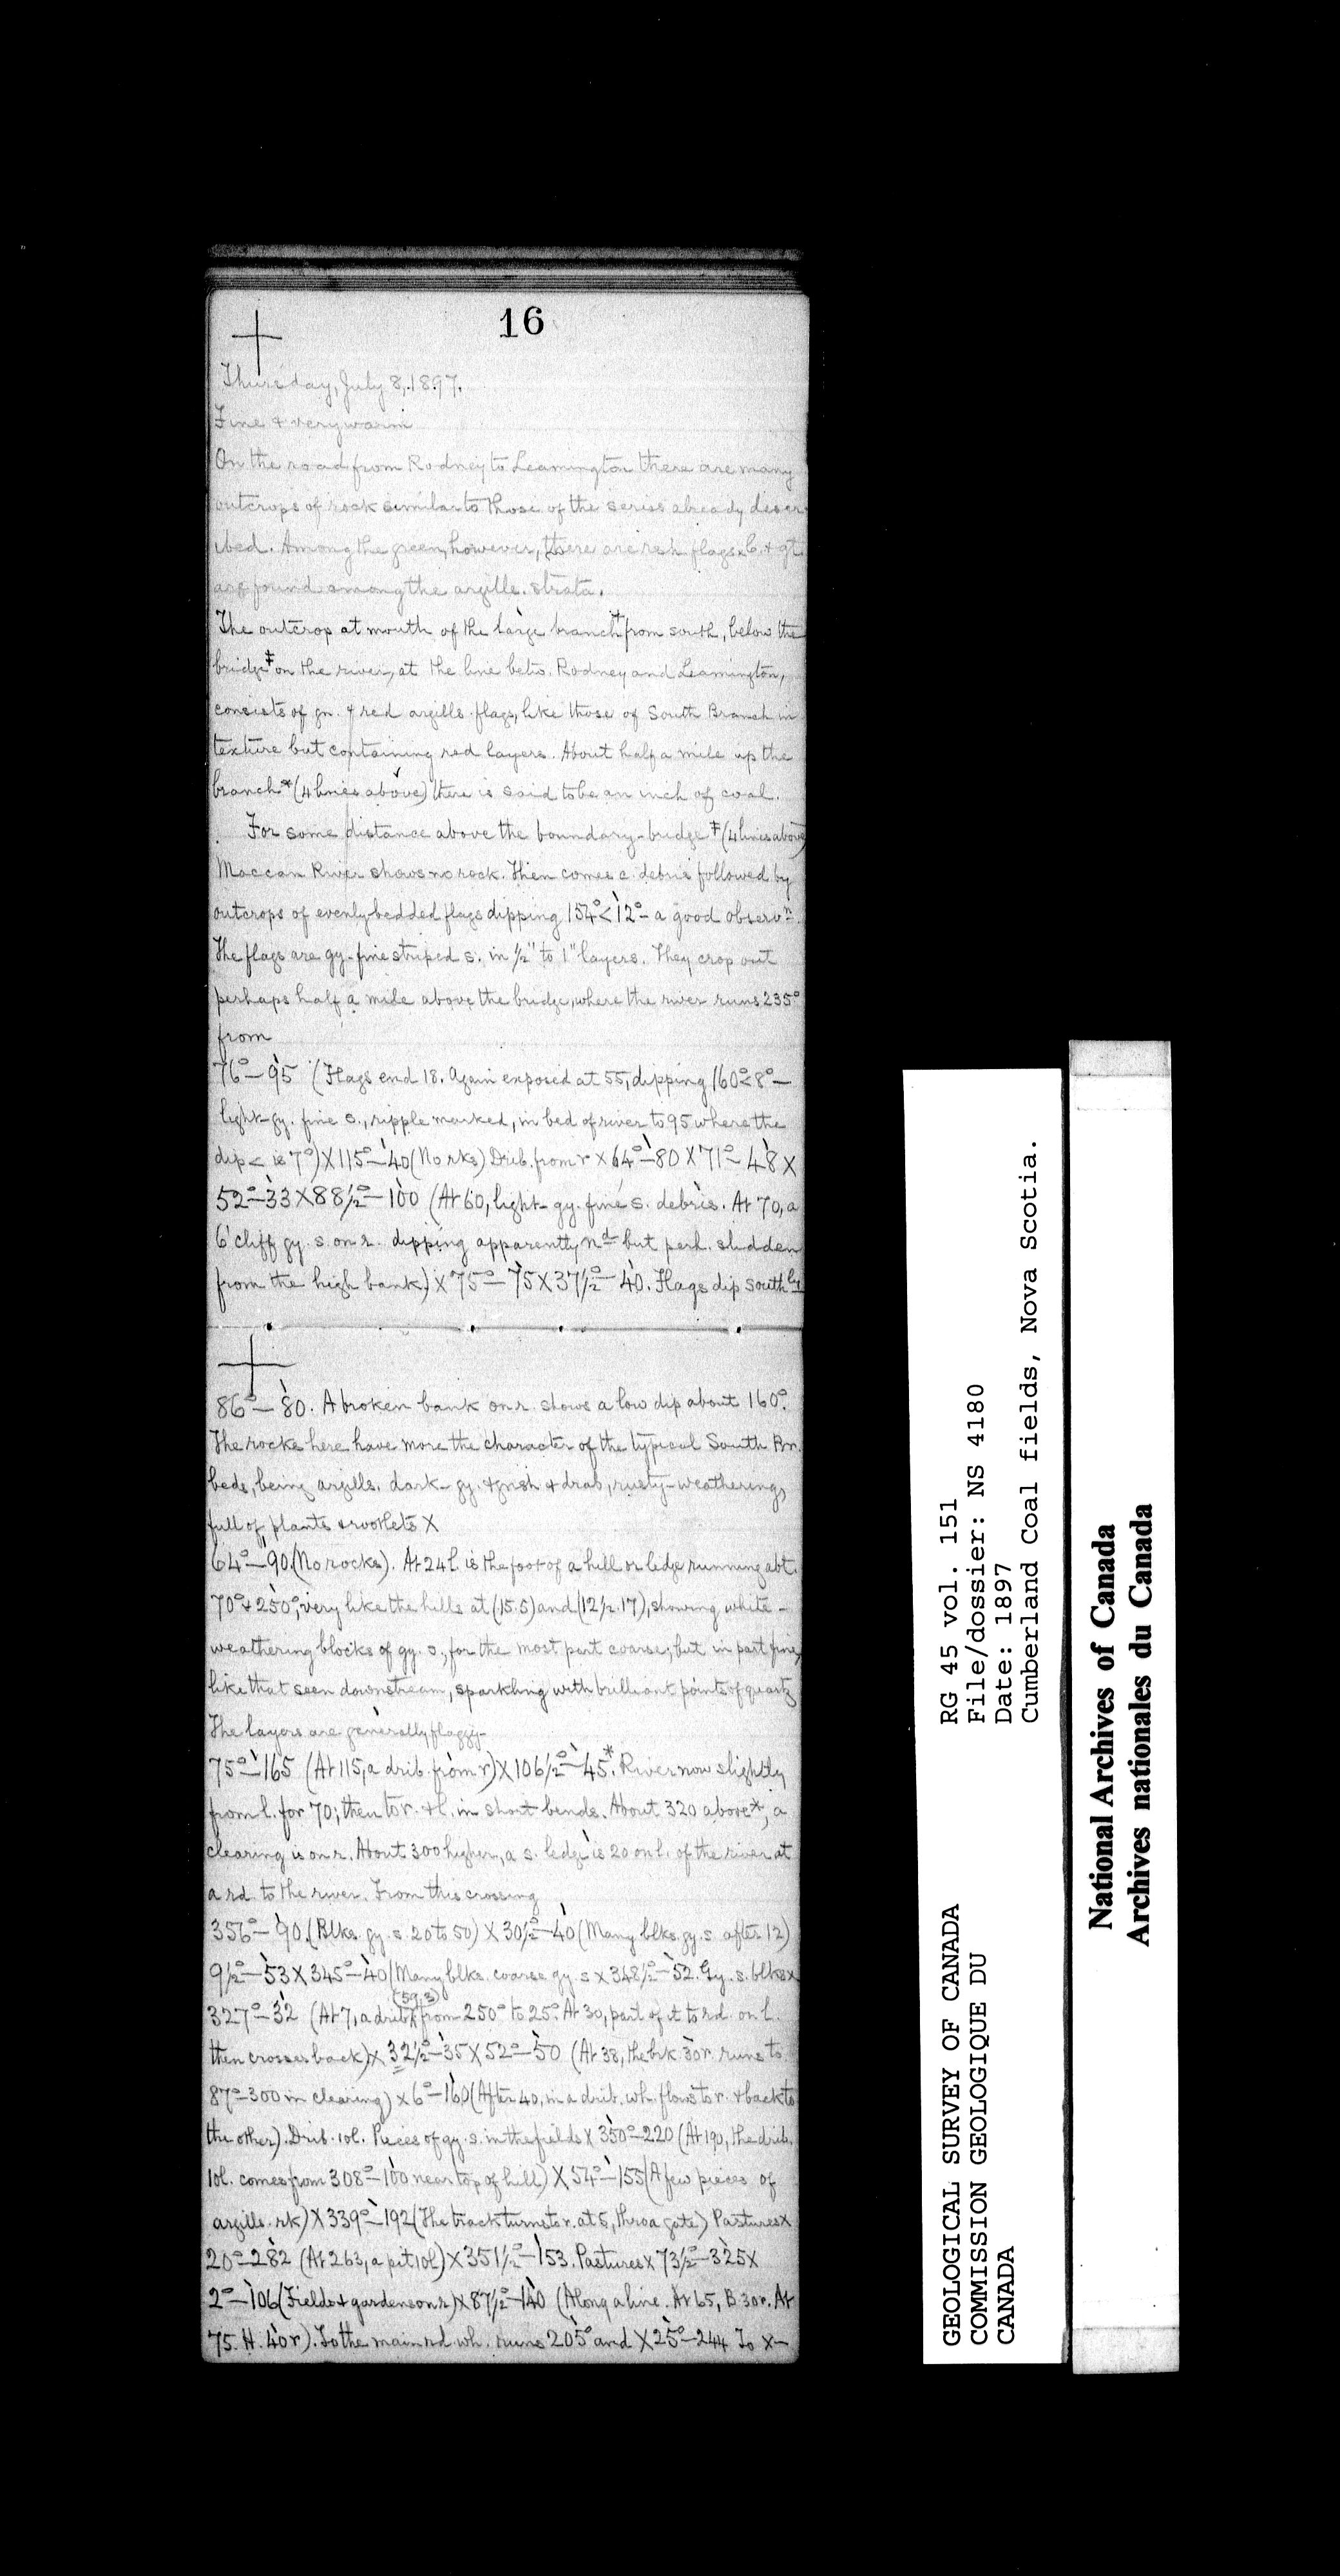 16
Thursday, July 8, 1897.
Fine & very warm
On the road from Rodney to Leamington there are many
outcrops of rock similar to those of the series already descr-
ibed. Among the green, however, there are red flags. C. & gt.
are found among the argills. strata.
The outcrop at mouth of the large branch† from south, below the
bridge‡ on the river, at the line betw. Rodney and Leamington,
consists of gn. & red argills. flags, like those of South Branch in
texture but containing red layers. About half a mile up the
branch* (4 lines above) there is said to be an inch of coal.
For some distance above the boundary-bridge‡ (4 lines above)
Maccan River shows no rock. Then comes c. debris followed by
outcrops of evenly-bedded flags dipping 154°<12°- a good observn.
The flags are gy-fine striped s. in ½" to 1" layers. They crop out
perhaps half a mile above the bridge, where the river runs 235°
from
76°-95 (Flags end 18. Again exposed at 55, dipping 160°<8°-
light-gy. fine s., ripple marked, in bed of river to 95 where the
dip < is 7°) X 115°-40 (No rks) Drib. from r X 64°-80 X 71°-48 X
52°-33 X 88½°-100 (At 60, light-gy. fine s. debris. At 70, a
6' cliff gy. s. on r. dipping apparently nd but perh. slidden
from the high bank.) X 75°-75 X 37½°-40. Flags dip southly
86°-80. A broken bank on r. shows a low dip about 160°.
The rocks here have more the character of the typical South Br.
beds, being argills. dark-gy. & gnsh & drab, rusty-weathering,
full of plants & rootlets X
64°-90. (No rocks). At 24 l. is the foot of a hill or ledge running abt.
70° & 250°, very like the hills at (15.5) and (12½.17), showing white-
weathering blocks of gy. s., for the most part coarse; but in part fine,
like that seen downstream, sparkling with brilliant points of quartz
The layers are generally flaggy-
75°-165 (At 115, a drib. from r) X 106½°-45*. River now slightly
from l. for 70; then to r. & l. in short bends. About 320 above*, a
clearing is on r. About 300 higher, a s. ledge is 20 on l. of the river at
a rd. to the river. From this crossing
356°-90. (Blks. gy. s. 20 to 50) X 30½°-40 (Many blks. gy. s. after 12)
9½°-53 X 345°-40 (Many blks. coarse gy. s X 348½°-52. Gy. s. blks X
(59.3)
327°-32 (At 7, a drib. from 250° to 25°. At 30, part of it to rd. on l.
then crosses back) X 32½°-35 X 52°-50 (At 38, the brk. 30 r. runs to
87°-300 in clearing) X 6°-160 (After 40, in a drib. wh. flows to r. & back to
the other). Drib. 10 l. Pieces of gy. s. in the fields X 350°-220 (At 190, the drib.
10 l. comes from 308°-100 near top of hill) X 54°-155 (A few pieces of
argills. rk) X 339°-192 (The track turns to r. at 5, thro a gate) Pastures X
20°-282 (At 263, a pit 10 l) X 351½°-153. Pastures X 73½°-325 X
2°-106 (Fields & gardens on r) X 87½°-140 (Along a line. At 65, B. 30 r. At
75. H. 40 r). To the main rd. wh. runs 205° and X 25°-244 To X-
RG 45 vol. 151
File/dossier: NS 4180
Date: 1897
Cumberland Coal fields, Nova Scotia.
GEOLOGICAL SURVEY OF CANADA
COMMISSION GEOLOGIQUE DU
CANADA
National Archives of Canada
Archives nationales du Canada